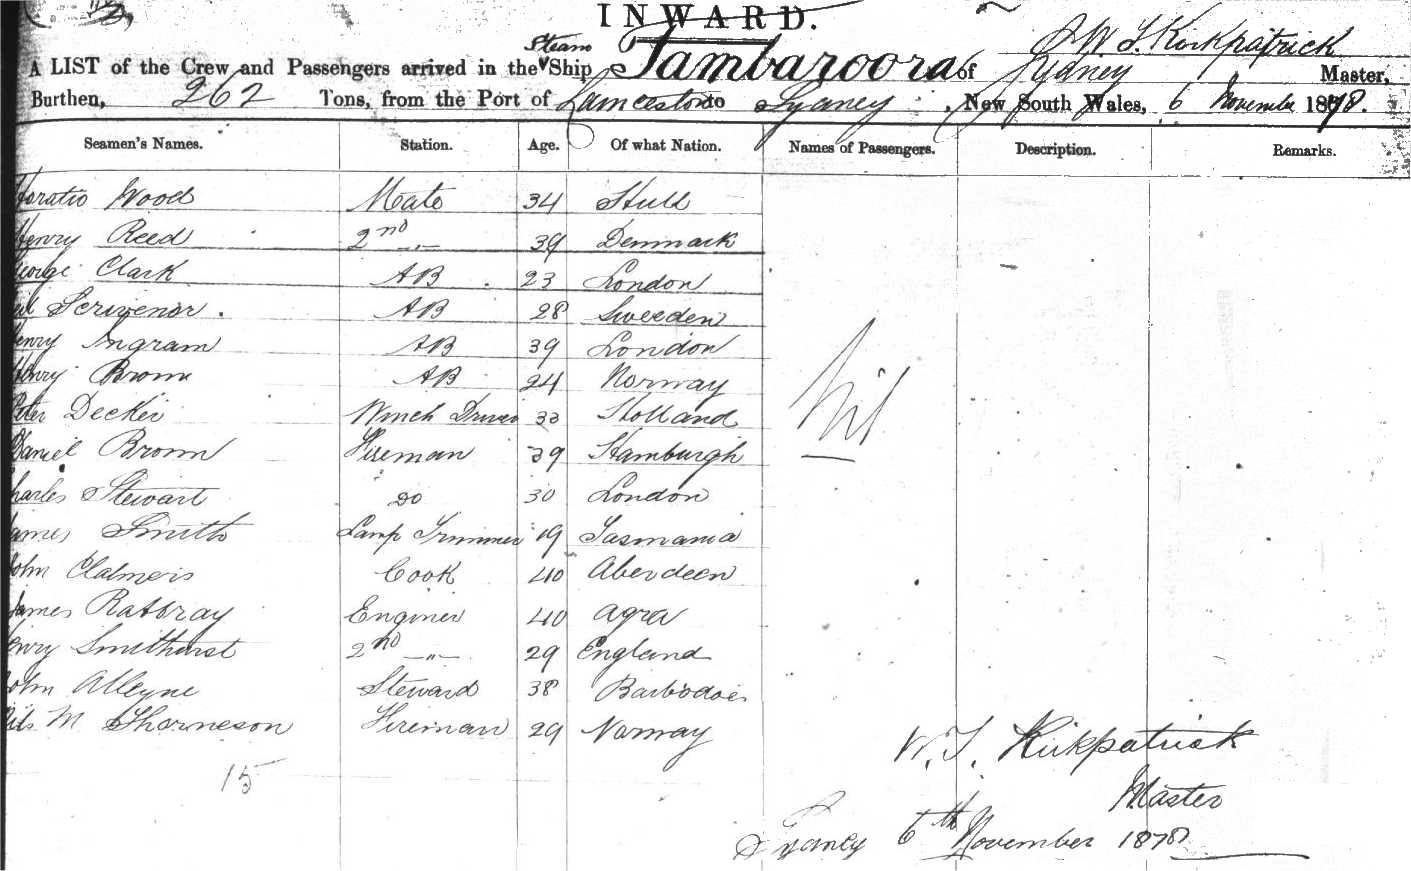 INWARD.
W T Kirkpatrick
A LIST of the Crew and Passengers arrived in the Steam Ship Tambaroora of Sydney Master,
Burthen, 262 Tons, from the Port of Launceston to Sydney, New South Wales, 6 November 1878.
Seamen's Names. Station. Age. Of what Nation. Names of Passengers. Description. Remarks.
Horatio Wood Mate 34 Hull
Henry Reed 2nd -"- 39 Denmark
George Clark AB 23 London
Scrivenor. AB 28 Sweeden
Henry Ingram AB 39 London
Henry Brown AB 24 Norway
Peter Decker Winch Driver 33 Holland
Nil
Daniel Brown Fireman 39 Hamburgh
Charles Stewart do 30 London
James Smith Lamp Trimmer 19 Tasmania
John Chalmers Cook 40 Aberdeen
James Rattray Enginer 40 Agra
Henry Smithurst 2nd -"- 29 England
John Alleyne Steward 38 Barbadoes
Nils M Thorneson Fireman 29 Norway
W. T. Kirkpatrick
15
Master
Sydney 6th November 1878